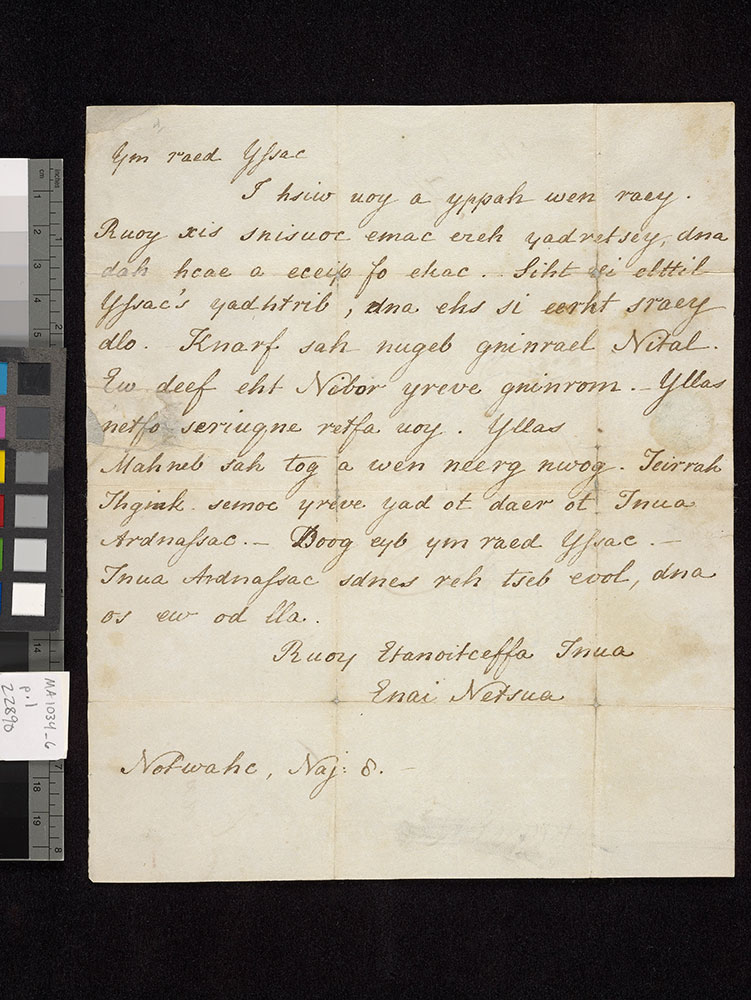 Ym raed Yssac
I hsiw uoy a yppah wen raey.
Ruoy xis snisuoc emac ereh yadretsey, dna
dah hcae a eceip fo ekac. Siht si elttil
Yssac's yadhtrib, dna ehs si eerht sraey
dlo. Knarf sah nugeb gninrael Nital.
Ew deef eht Nibor yreve gninrom. — Yllas
netfo seriuqne retfa uoy. Yllas
Mahneb sah tog a wen neerg nwog. Teirrah
Thgink semoc yreve yad ot daer ot Tnua
Ardnassac. — Doog eyb ym raed Yssac. —
Tnua Ardnassac sdnes reh tseb evol, dna
os ew od lla.
Ruoy Etanoitceffa Tnua
Enai Netsua
Notwahc, Naj: 8.
MA 1034-6
p. 1
22890
inches
cm
1
2
3
4
5
1
2
14
17
18
19
8